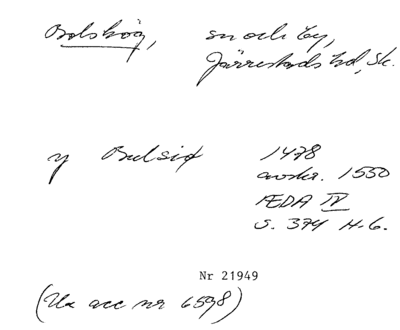 Bolshög, sn och by,
Järrestads hd, Sk.
y Bulsix 1478
avskr. 1550
ÆDA IV
s. 374 H-6.
Nr 21949
(Ur acc nr 6598)